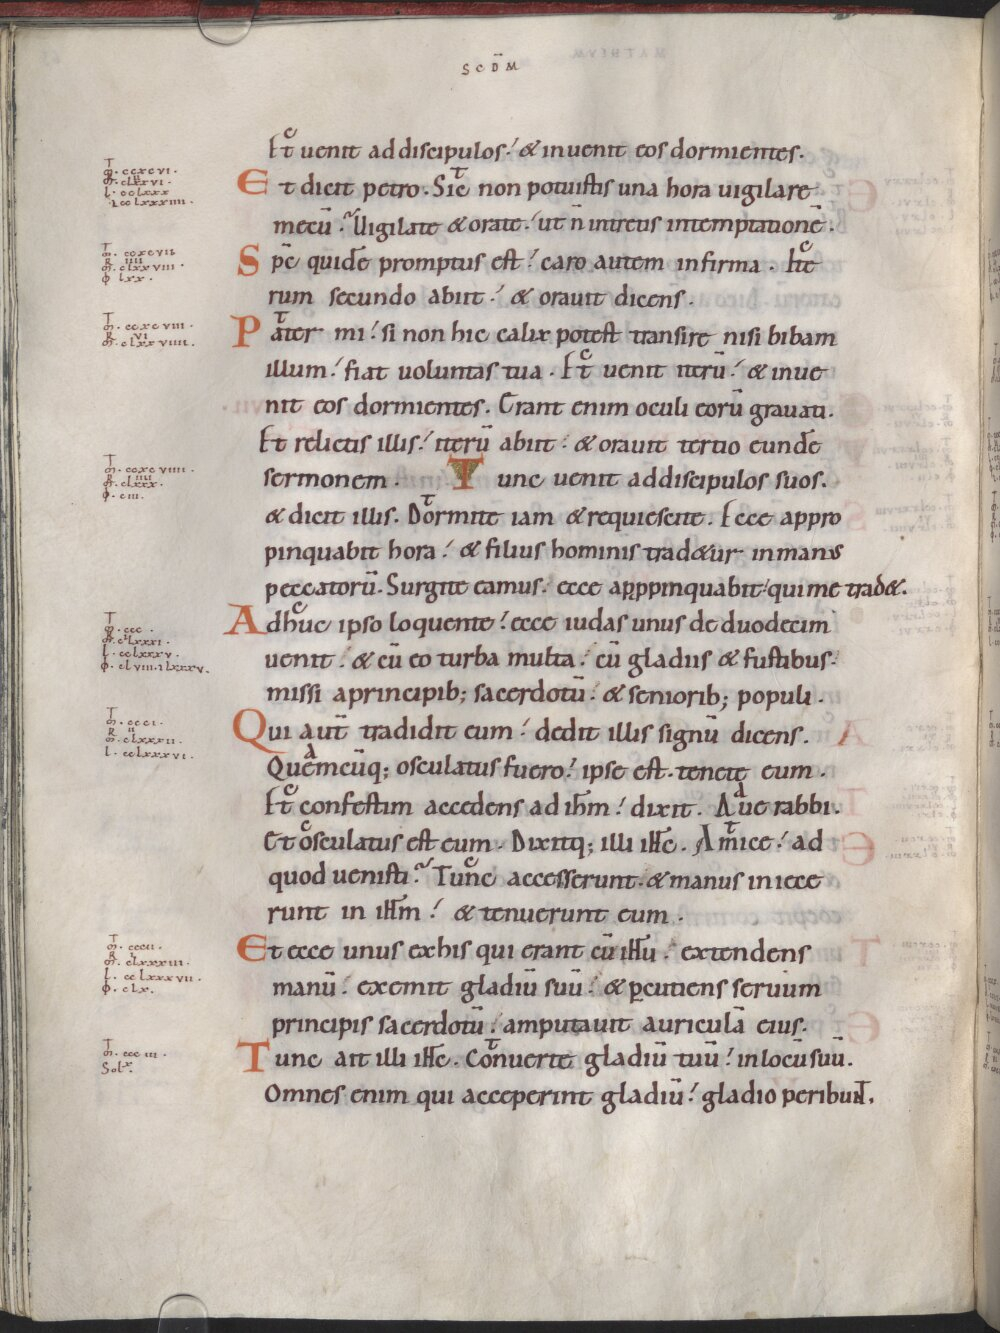 SCDM̄
Et uenit ad discipulos. & inuenit eos dormientes.
Et dicit petro. Sic non potuistis una hora uigilare
mecū. Vigilate & orate. ut n̄ intretis intemptationē.
Sp̄c quidē promptus est. caro autem infirma. Ite
rum secundo abiit. & orauit dicens.
Pater mi. si non hic calix potest transire nisi bibam
illum. fiat uoluntas tua. Et uenit iterū. & inue
nit eos dormientes. Erant enim oculi eorū grauati.
Et relictis illis. iterū abiit. & orauit tertio eundē
sermonem. Tunc uenit ad discipulos suos.
& dicit illis. Dormite iam & requiescite. Ecce appro
pinquabit hora. & filius hominis trad&ur inmanus
peccatorū. Surgite eamus. ecce appropinquabit qui me trad&.
Adhuc ipso loquente. ecce iudas unus de duodecim
uenit. & cū eo turba multa. cū gladiis & fustibus.
missi aprincipib; sacerdotū. & seniorib; populi.
Qui aut̄ tradidit eum. dedit illis signū dicens.
Quemcūq; osculatus fuero. ipse est. tenete eum.
Et confestim accedens ad ihm̄. dixit. Aue rabbi.
Et osculatus est eum. Dixitq; illi ihc̄. Amice. ad
quod uenisti. Tunc accesserunt. & manus iniece
runt in ihm̄. & tenuerunt eum.
Et ecce unus exhis qui erant cū ihū. extendens
manū. exemit gladiū suū. & pcutiens seruum
principis sacerdotū. amputauit auriculā eius.
Tunc ait illi ihc̄. Conuerte gladiū tuū. inlocū suū.
Omnes enim qui acceperint gladiū. gladio peribunt.